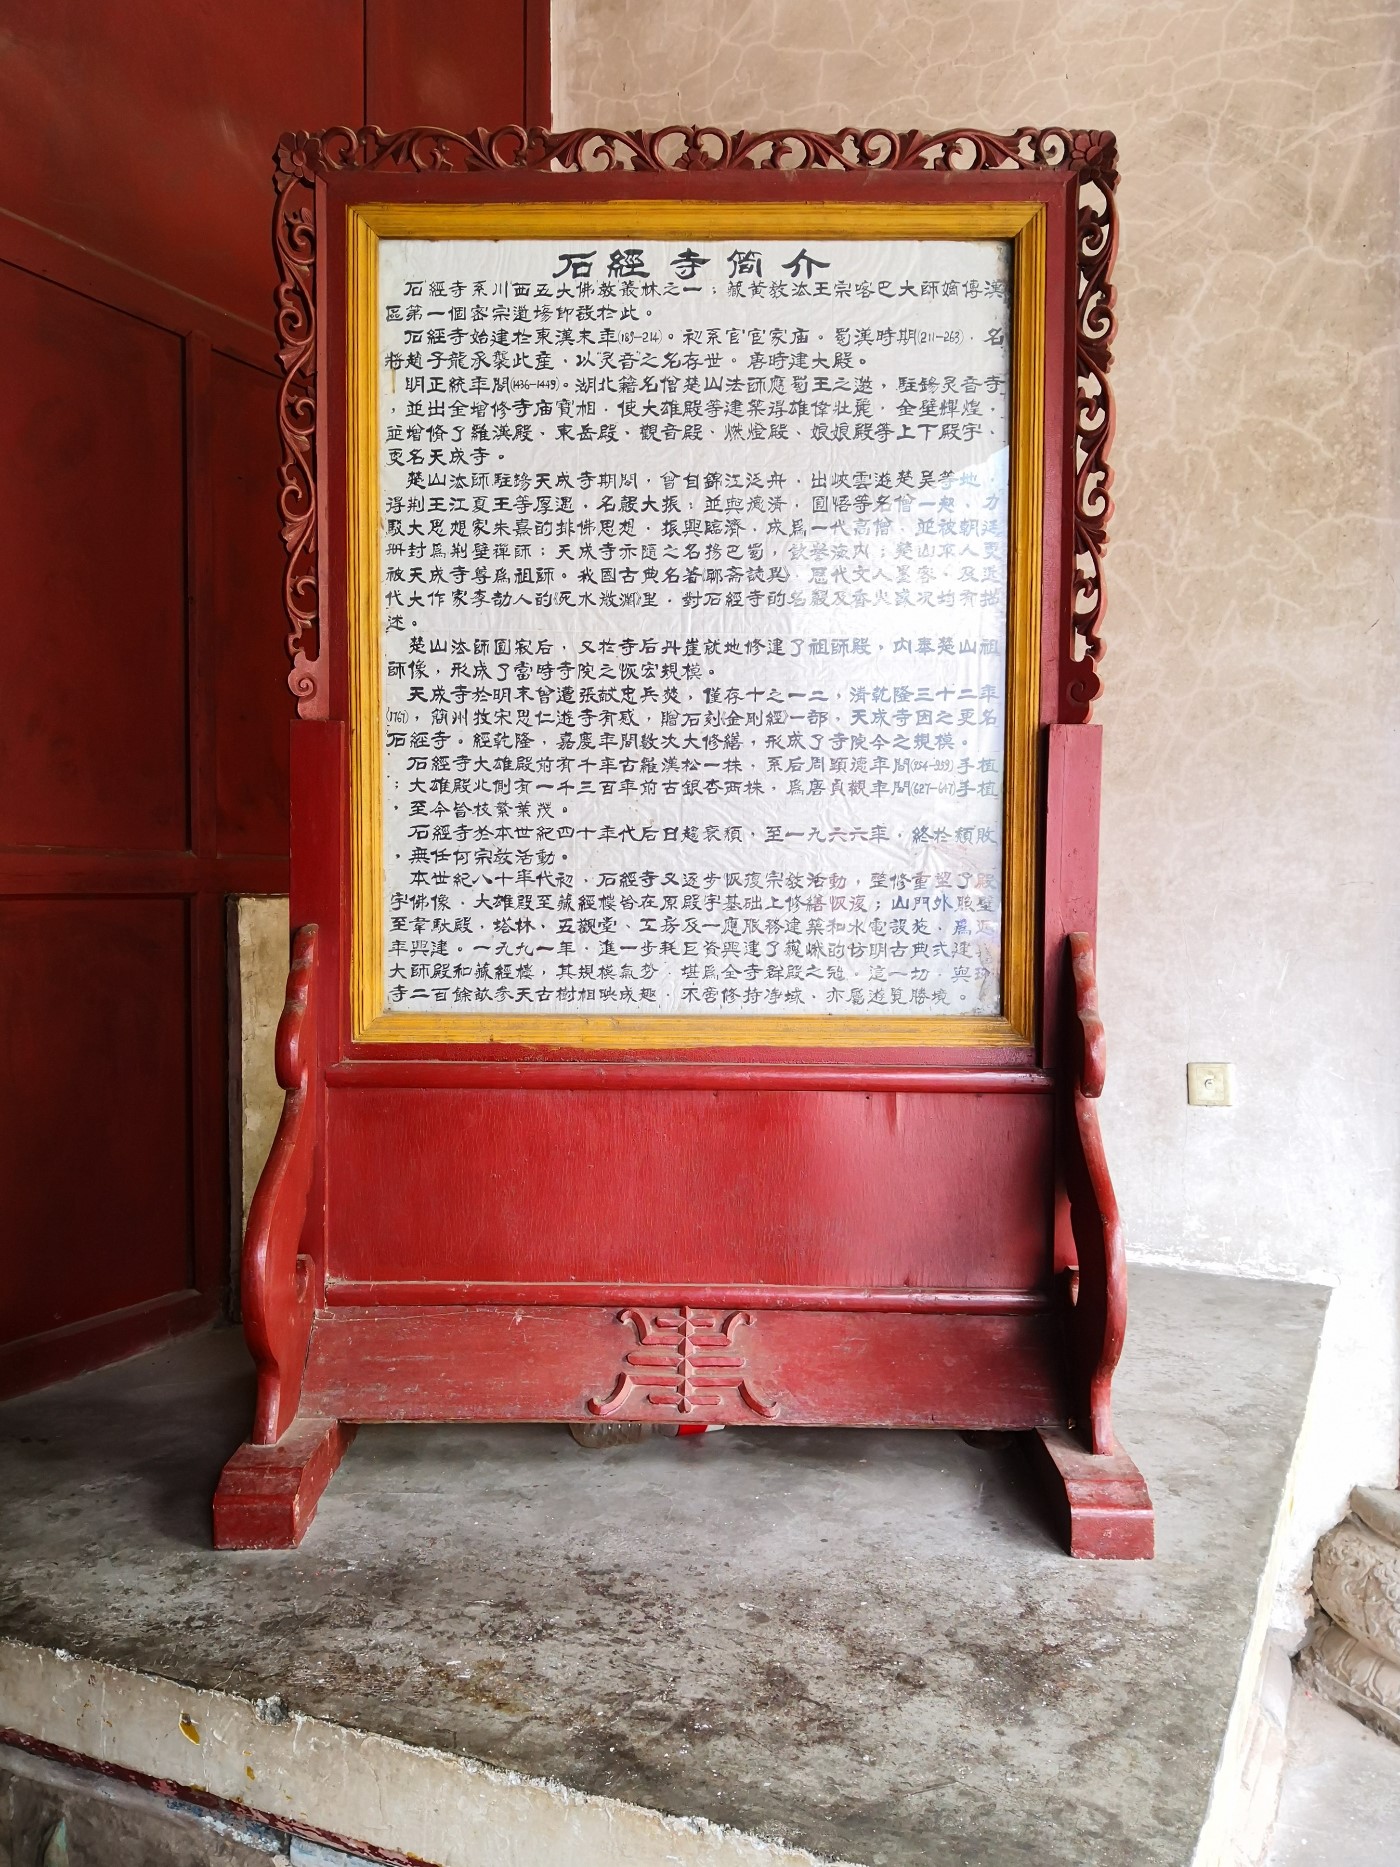 石經寺簡介
石經寺系川西五大佛教叢林之一；藏黄教法王宗喀巴大師嫡傳漢
區第一個密宗道場即設於此。
石經寺始建於東漢末年(189-214)。初系官宦家庙。蜀漢時期(211-263)，名
將趙子龍承襲此産，以“灵音”之名存世。唐時建大殿。
明正統年間(1436-1449)。湖北籍名僧楚山法師應蜀王之邀，駐錫灵音寺
，並出全增修寺庙寶相，使大雄殿等建築得雄偉壯麗，全壁輝煌，
並增脩了羅漢殿、東岳殿、觀音殿、燃燈殿、娘娘殿等上下殿宇、
更名天成寺。
楚山法師駐錫天成寺期間，曾自錦江泛舟，出峽雲遊楚吴等地，
得荆王江夏王等厚遇，名聲大振；並與德濟，圓悟等名僧一起，力
駁大思想家朱熹的排佛思想，振興臨濟，成爲一代高僧，並被朝廷
册封爲荆璧禪師；天成寺亦隨之名揚巴蜀，海内；楚山本人更
被天成寺尊爲祖師。我國古典名著《聊斋誌異》，歷代文人墨客，及近
代大作家李劼人的《死水微瀾》里，對石經寺的名聲及香火盛况均有描
述。
楚山法師圓寂后，又於寺后丹崖就地修建了祖師殿，内奉楚山祖
師像，形成了當時寺院之恢宏規模。
天成寺於明末曾遭張献忠兵燹，僅存十之一二，清乾隆三十二年
(1767)，簡州牧宋思仁遊寺有感，贈石刻《金剛經》一部，天成寺因之更名
石經寺。經乾隆，嘉慶年間數次大修繕，形成了寺院今之規模。
石經寺大雄殿前有千年古羅漢松一株，系后周顯德年間(954-959)手植
；大雄殿北側有一千三百年前古銀杏两株，爲唐貞觀年間(627-647)手植
，至今皆枝繁葉茂。
石經寺於本世紀四十年代后日趨衰頹，至一九六六年，終於頹敗
，無任何宗教活動。
本世紀八十年代初，石經寺又逐步恢復宗教活動，整修重塑了殿
宇佛像，大雄殿至藏經樓皆在原殿宇基础上修繕恢復；山門外照壁
至韋馱殿，塔林，五觀堂、工房及一應服務建築和水電設施，爲近
年興建。一九九一年，進一步耗巨资興建了巍峨的仿明古典式建築
大師殿和藏經樓，其規模氣势，堪爲全寺群殿之冠。這一切，與
寺二百餘畝参天古樹相映成趣，不啻修持净域，亦屬遊覧勝境。